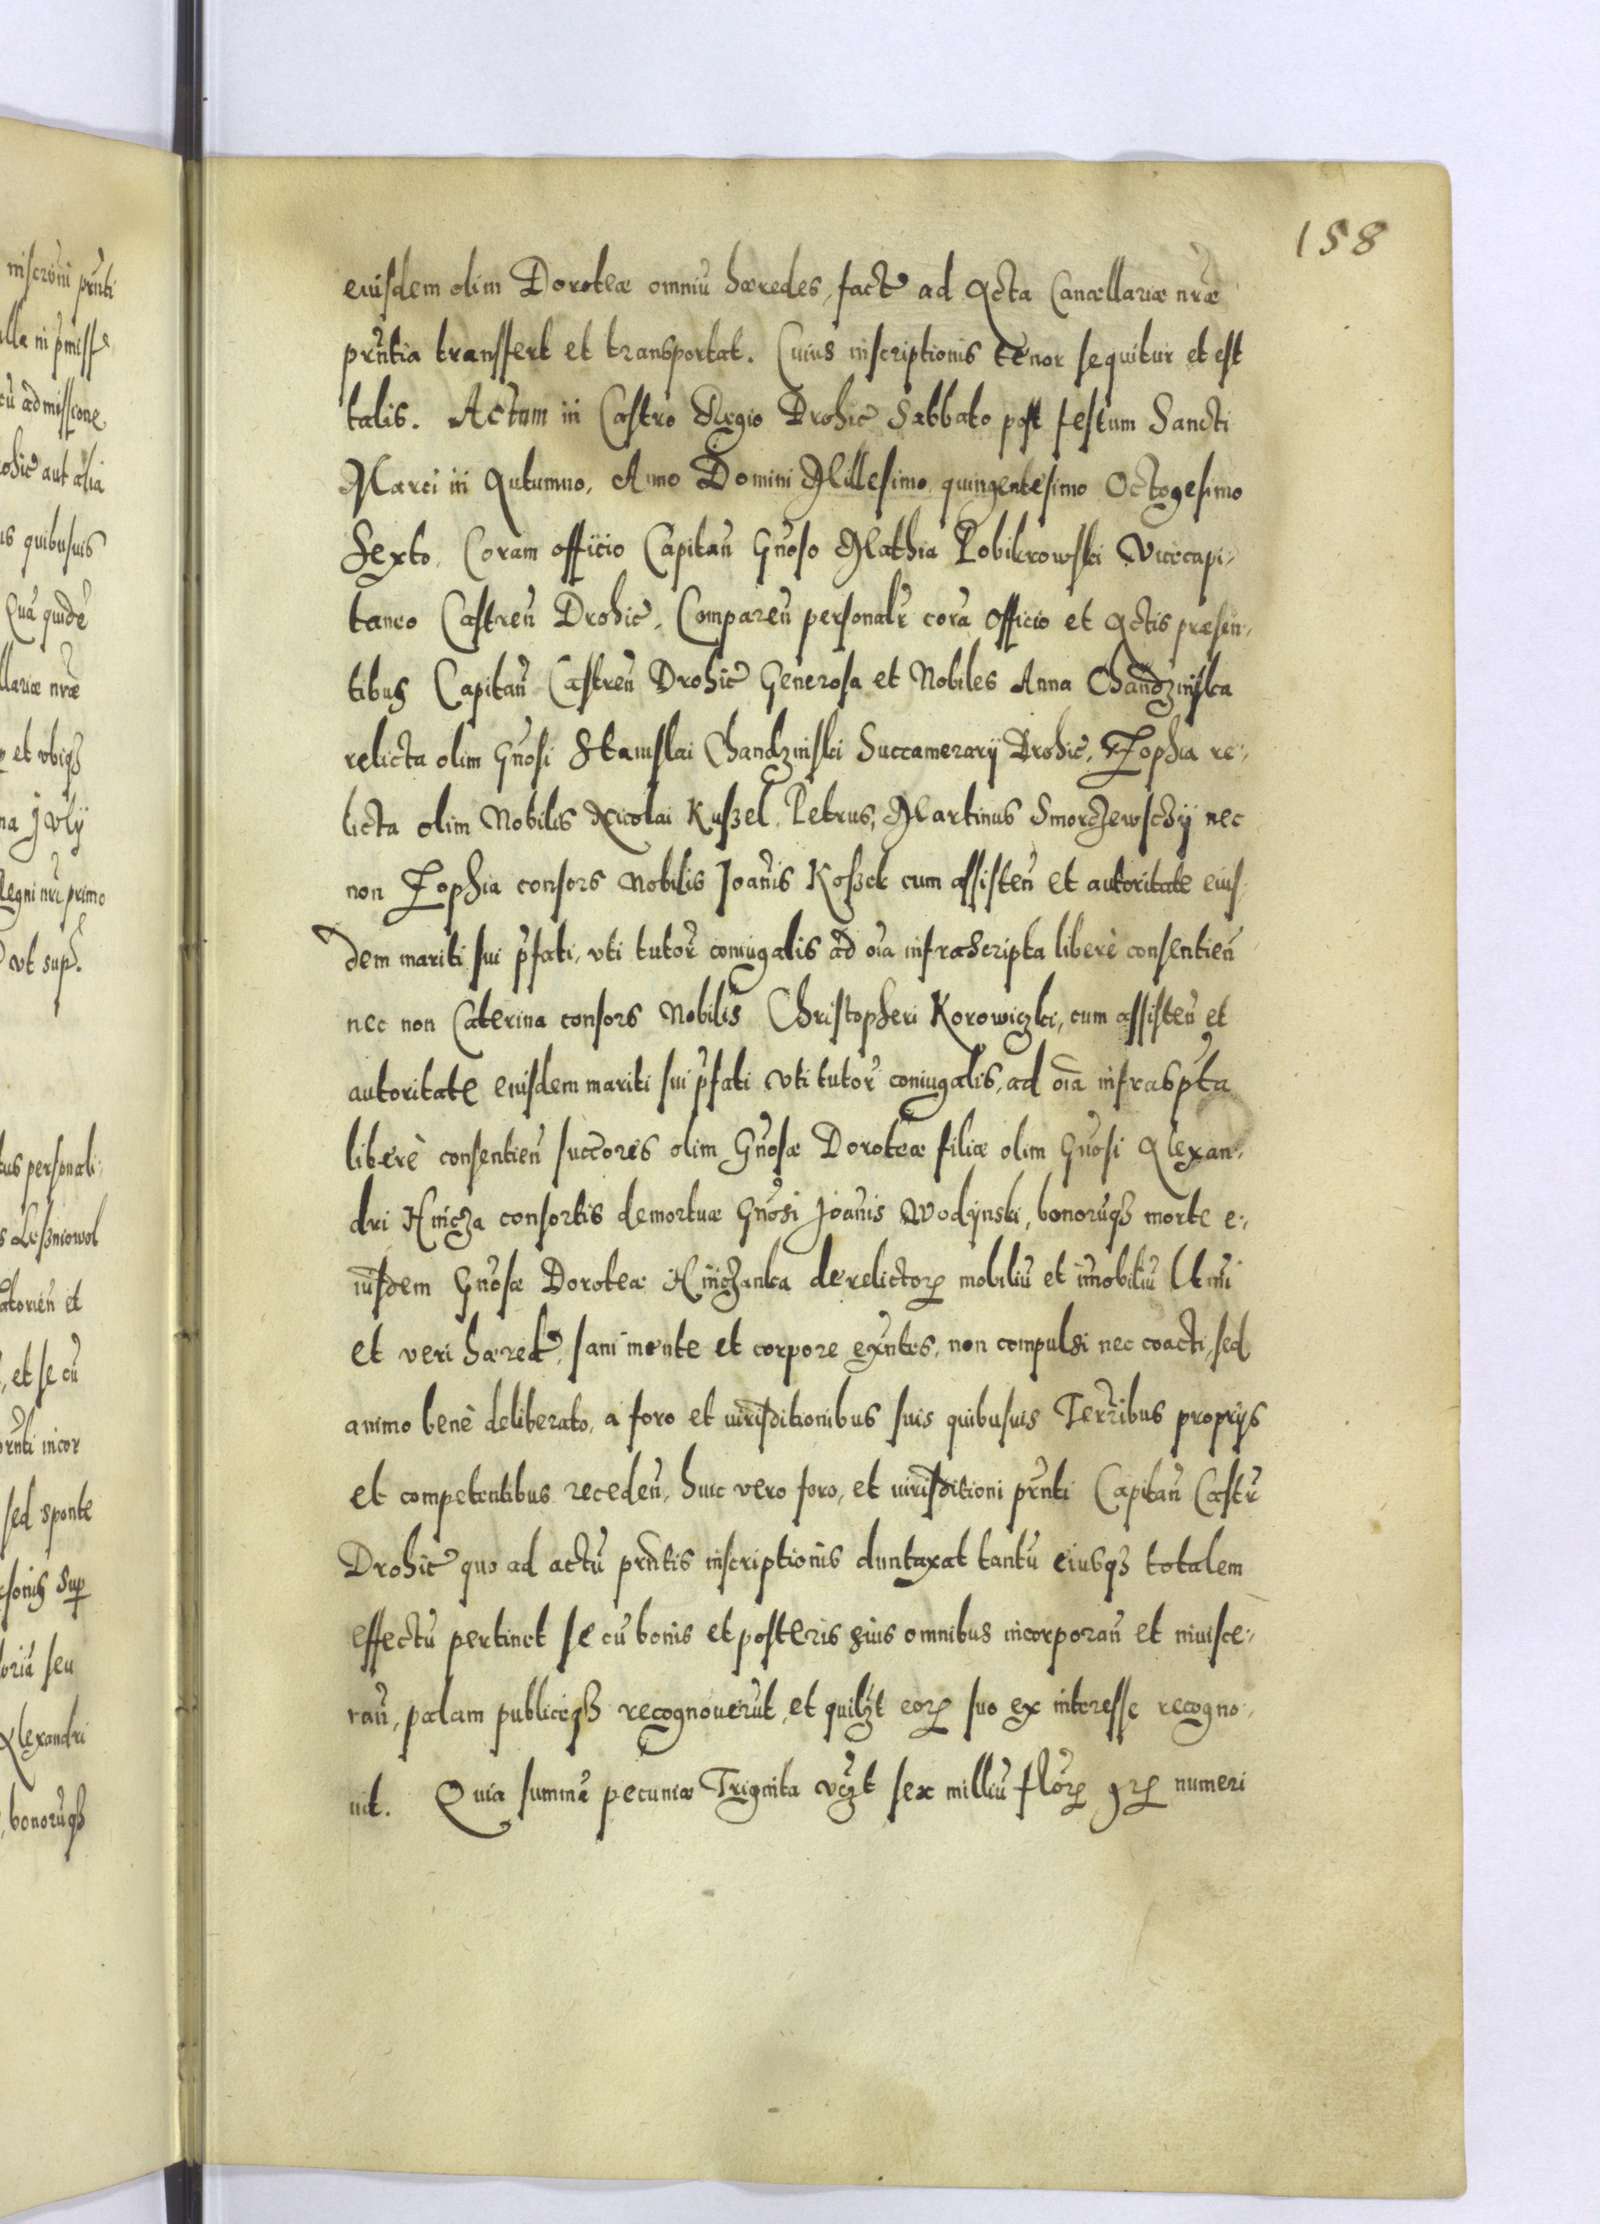 158
eiusdem olim Doroteæ omniũ hæredes, fact ad Acta Cancellariæ nr̃æ
pr̃ntia transfert et transportat. Cuius inscriptionis tenor sequitur et est
talis. Actum in Castro Regio Drohic Sabbato post festum Sancti
Marci in Autumno, Anno Domini Millesimo quingentesimo Octogesimo
Sexto, Coram officio Capitan̄ Gñoso Mathia Pobikrowski Vicecapi-
taneo Castren̄ Drohic, Comparen̄ personalr̃ corã Officio et Actis præsen-
tibus Capitan̄ Castren̄ Drohic Generosa et Nobiles Anna Chandzinska
relicta olim Gñosi Stanislai Chandzinski Succamerarij Drohic, Zophia re-
licta olim Nobilis Nicolai Kuszel, Petrus, Martinus Smorczewscÿ nec
non Zophia consors Nobilis Joañis Koszek cum assisten̄ et autoritate eius-
dem mariti sui p̃fati, uti tutor̃ coniugalis ad oĩa infrascripta liberè consentien̄
nec non Caterina consors Nobilis Christopheri Korowiczki, cum assisten̄ et
autoritate eiusdem mariti sui p̃fati uti tutor̃ coniugalis, ad oĩa infrasp̃ta
liberè consentien̄ succõres olim Gñosæ Doroteæ filiæ olim Gñosi Alexan-
dri Hincza consortis demortuæ Gñosi Joañis Wodÿnski, bonorũq₃ morte e-
iusdem Gñosæ Doroteæ Hinczanka derelictorꝝ mobiliũ et im̃obiliũ
et veri hæred, sani mente et corpore exñtes, non compulsi nec coacti, sed
animo benè deliberato, a foro et iurisditionibus suis quibusuis Terr̃ibus proprÿs
et competentibus receden̄, huic vero foro, et iurisditioni pr̃nti Capitan̄ Castr̃
Drohic quo ad actũ pr̃ntis inscriptionis duntaxat tantũ eiusq₃ totalem
effectũ pertinet se cũ bonis et posteris suis omnibus incorporan̄ et inuisce-
ran̄, palam publiceq₃ recognouerũt, et quilz̃t eorꝝ suo ex interesse recogno-
uit. Quia summã pecuniæ Triginta vcz̃t sex milliũ flõrꝝ numeri